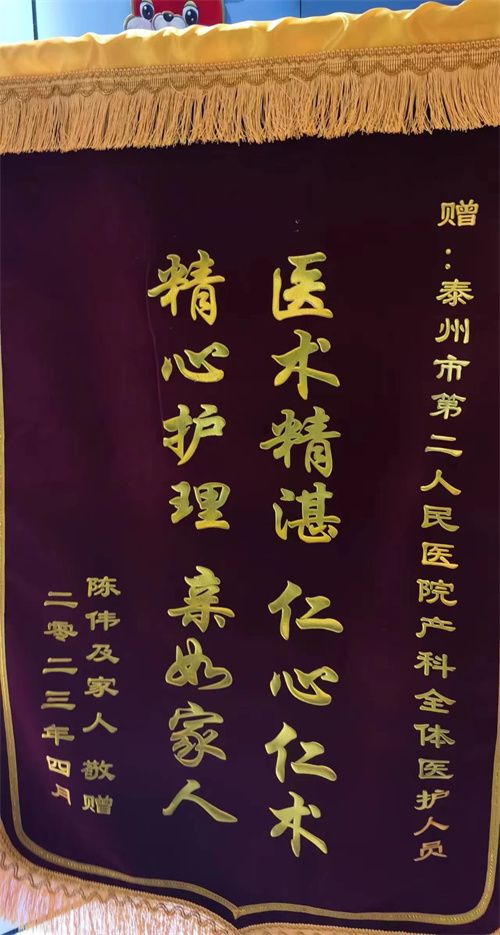 赠：泰州市第二人民医院产科全体医护人员
医术精湛 仁心仁术
精心护理 亲如家人
陈伟及家人 敬赠
二零二三年四月